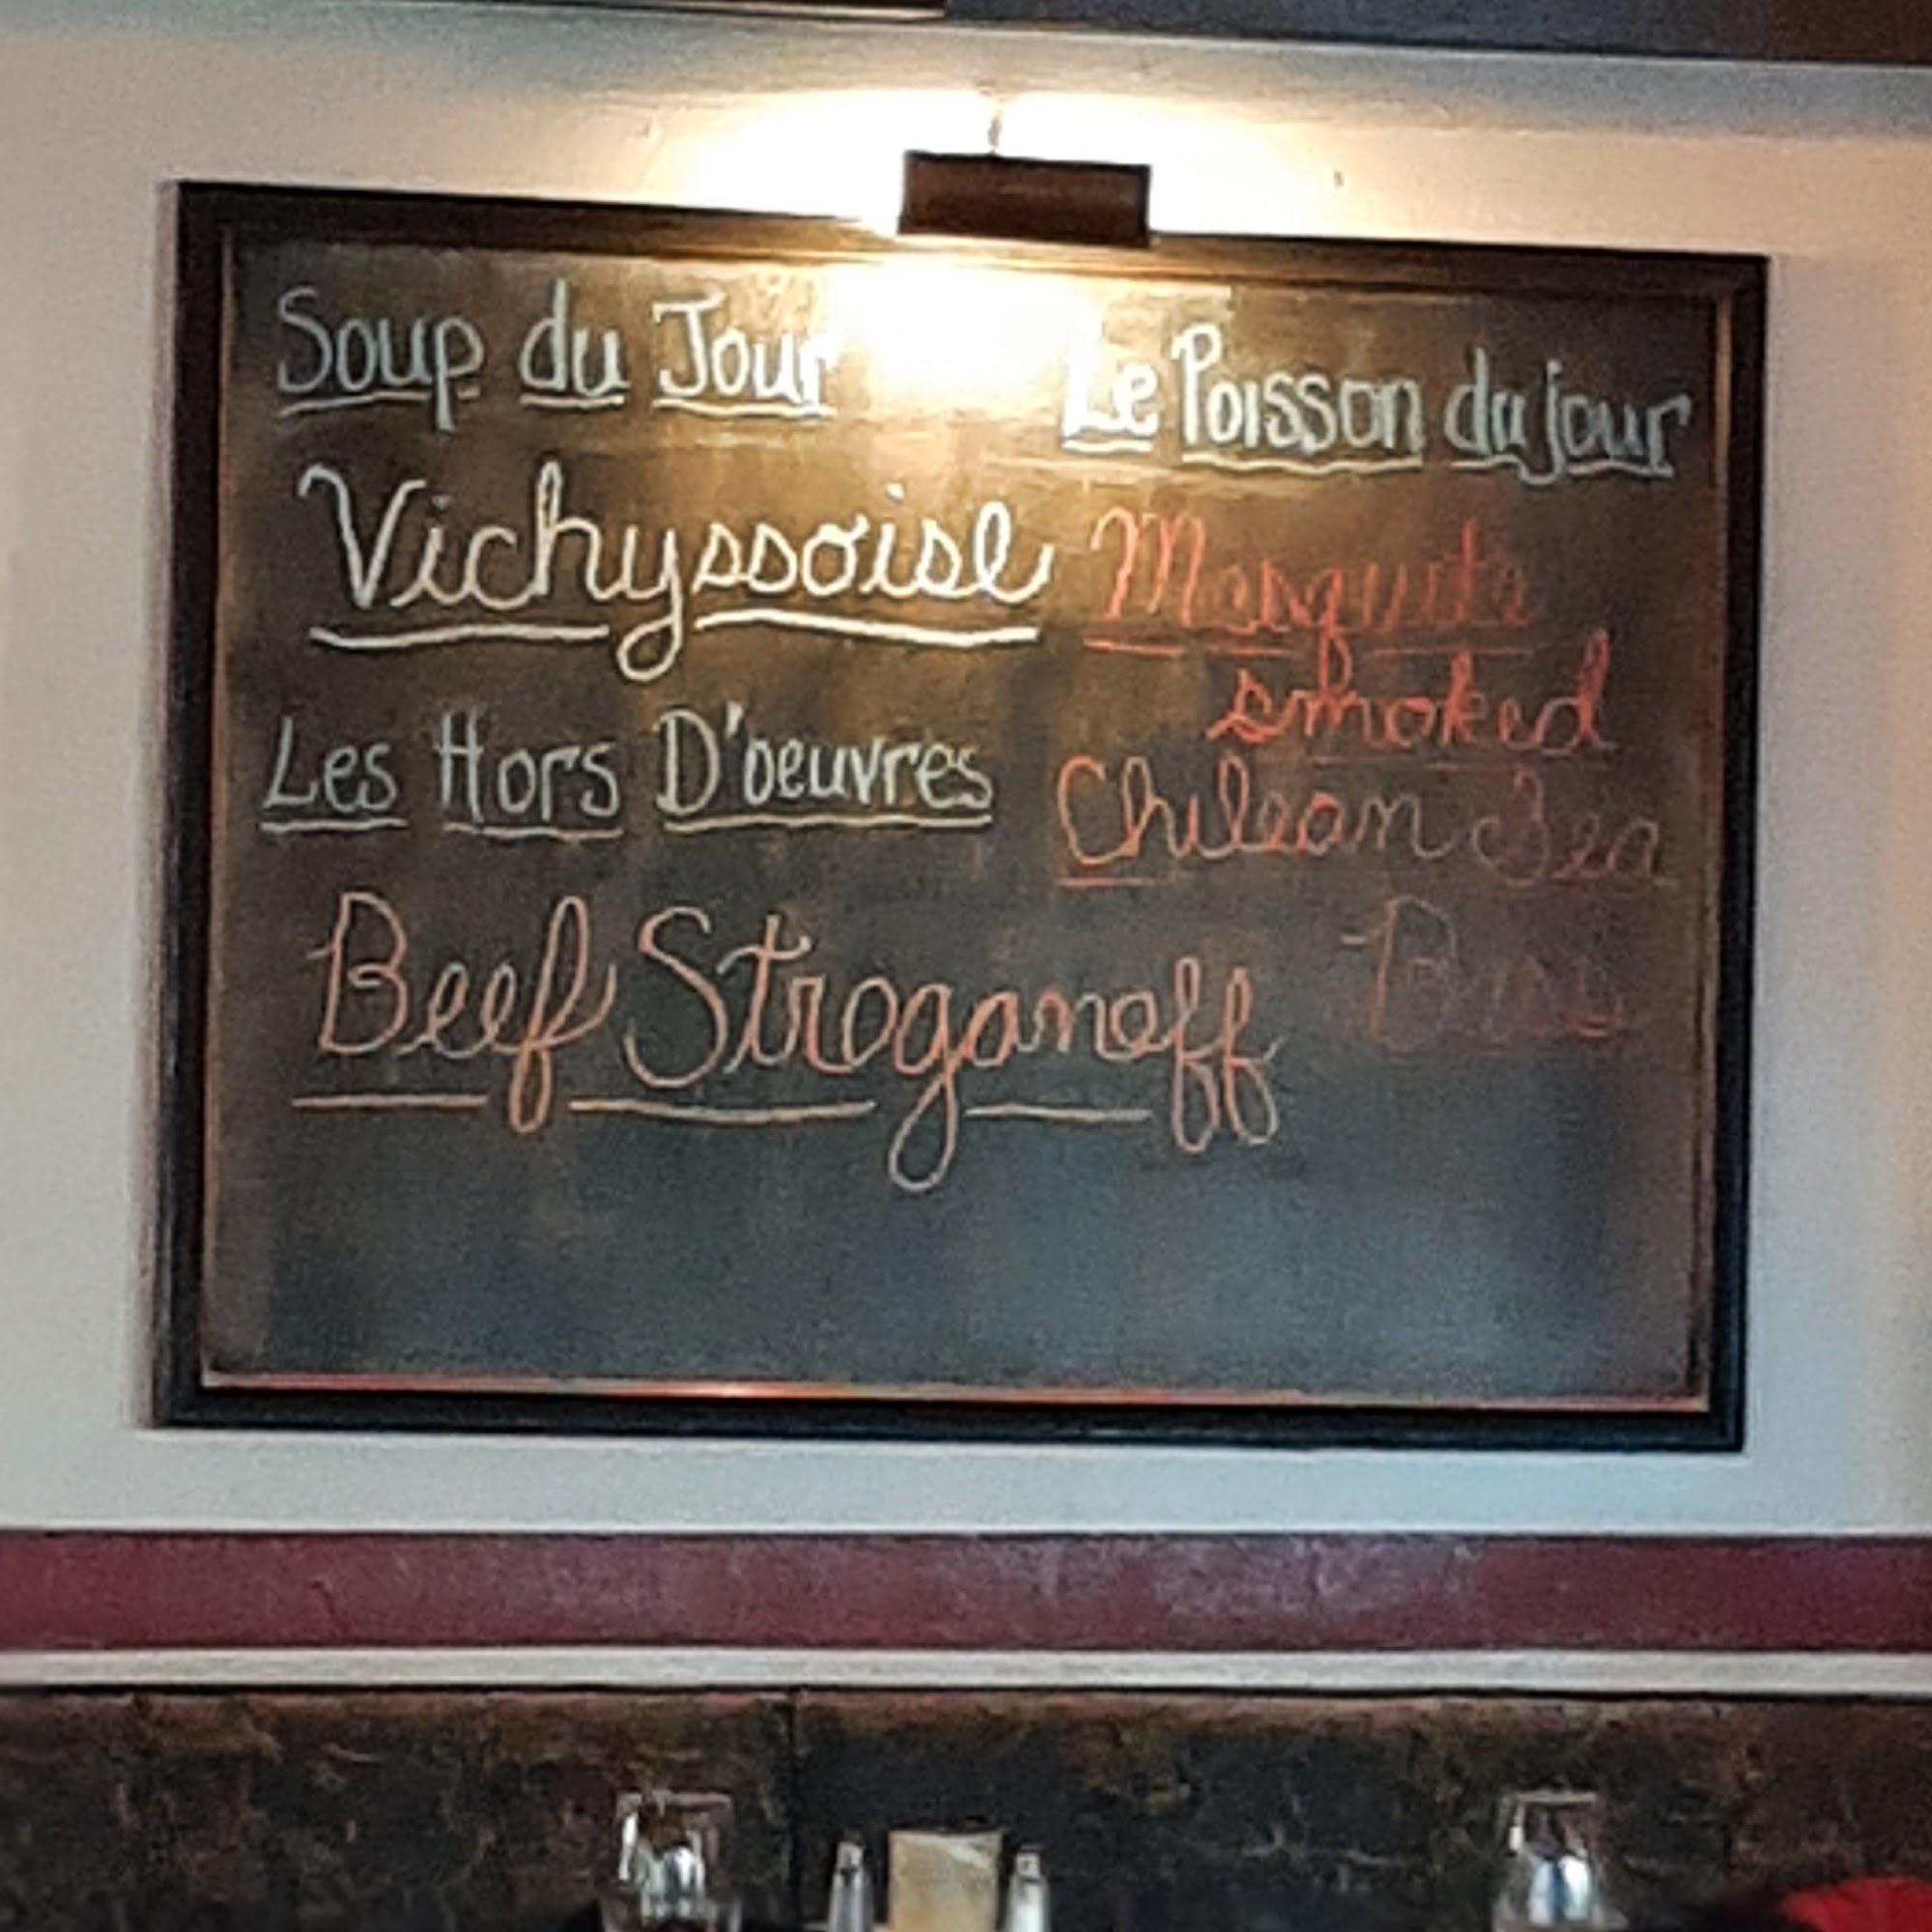 Soup du Jour
Vichyssoise
Les Hors D'oeuvres
Beef Stroganoff
Le Poisson du jour
Mesquite
smoked
Chilean Sea
Bass